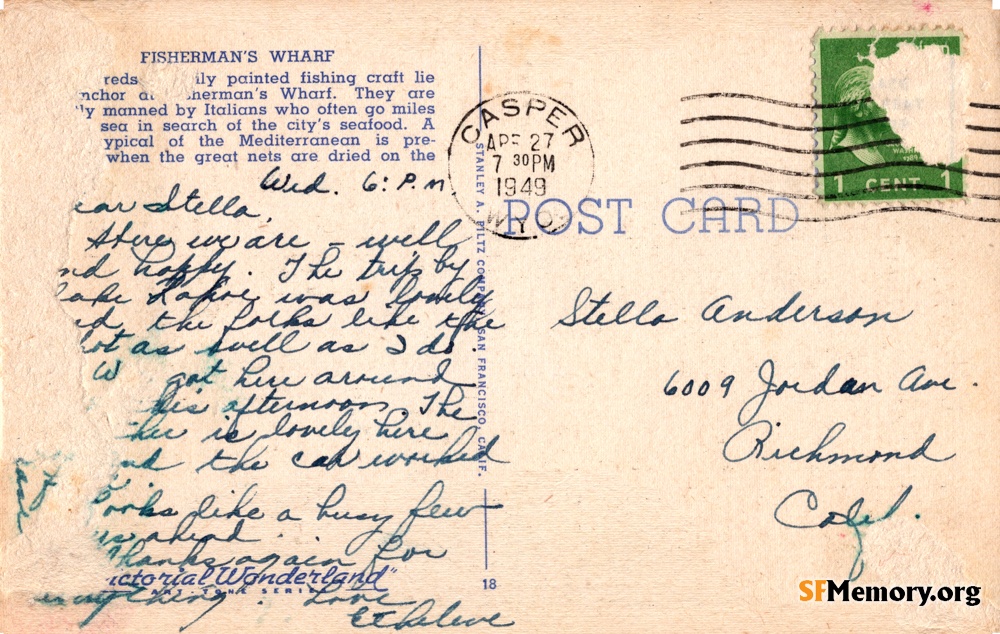 FISHERMAN'S WHARF
reds ily painted fishing craft lie
nchor at herman's Wharf. They are
ly manned by Italians who often go miles
sea in search of the city's seafood. A
ypical of the Mediterranean is pre-
when the great nets are dried on the
Wed. 6: P.M
ear Stella,
there we are - well
nd happy. The trip by
ake Tahoe was lovely
nd the folks like the
lot as well as I do.
W got here around
this afternoon. The
ther is lovely here
nd the car worked
ooks like a busy few
ys ahead.
Thanks again for
everything. Love
Ethelene
ictorial Wonderland"
ART-TONE SERIES
STANLEY A. PILTZ COMPANY, SAN FRANCISCO, CALIF.
18
CASPER
APR 27
7 30 PM
1949
WYO.
1 CENT 1
POST CARD
Stella Anderson
6009 Jordan Ave.
Richmond
Calif.
SFMemory.org